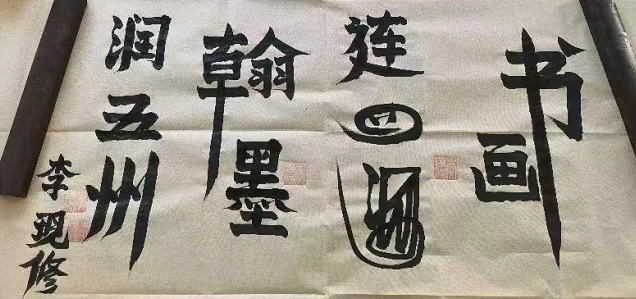 书画
连四海
翰墨
润五州
李现修